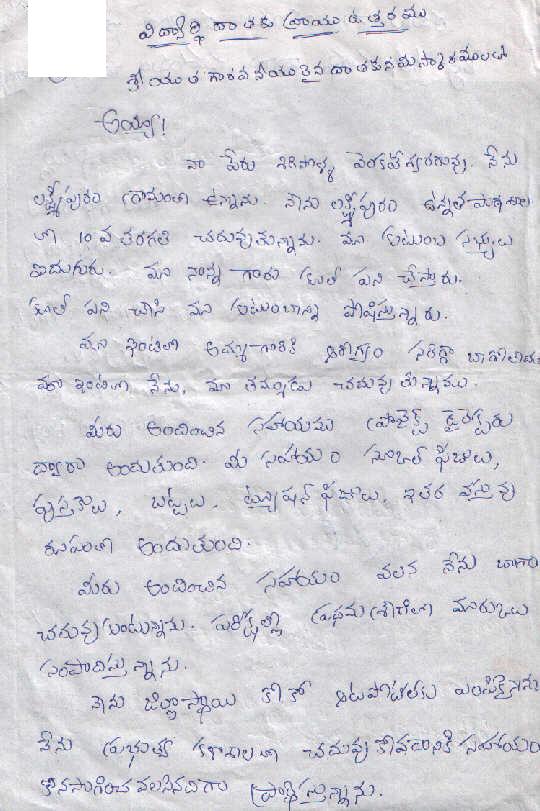 విద్యార్థి దాతకు వ్రాయు ఉత్తరము
శ్రీయుత గౌరవనీయులైన దాతకు నమస్కారములతో
అయ్యా!
నా పేరు వెంకటేశ్వరరావు. నేను
లక్ష్మీపురం గ్రామంలో ఉన్నాను. నేను లక్ష్మీపురం ఉన్నత పాఠశాల
లో 10వ తరగతి చదువుతున్నాను. మా కుటుంబ సభ్యులు
ఐదుగురు. మా నాన్న గారు కూలి పని చేస్తారు.
కూలి పని చేసి మా కుటుంబాన్ని పోషిస్తున్నారు.
మా ఇంటిలో అమ్మ గారికి ఆరోగ్యం సరిగ్గా బాగోలేదు
మా ఇంటిలో నేను, మా తమ్ముడు చదువుతున్నాము.
మీరు అందించిన సహాయము ప్రాజెక్ట్ డైరెక్టరు
ద్వారా అందుతుంది. మీ సహాయం స్కూల్ ఫీజులు,
పుస్తకాలు, బట్టలు, ట్యూషన్ ఫీజులు, ఇతర వస్తువు
రూపంలో అందుతుంది.
మీరు అందించిన సహాయం వలన నేను బాగా
చదువుకుంటున్నాను. పరీక్షల్లో ప్రథమ శ్రేణిలో మార్కులు
సంపాదిస్తున్నాను.
నేను జిల్లాస్థాయి కోకో ఆటపోటీలకు ఎంపికైనాను
నేను ప్రభుత్వ కళాశాలలో చదువుకోవడానికి సహాయం
కొనసాగించవలసినదిగా ప్రార్థిస్తున్నాను.